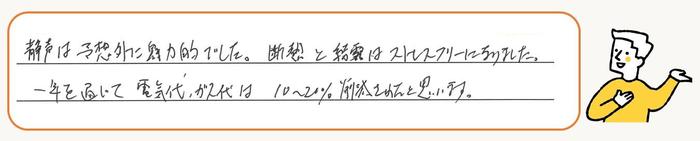 静声は予想外に魅力的でした。断熱と結露はストレスフリーになりました。
一年を通じて電気代、ガス代は10〜20%削減されたと思います。